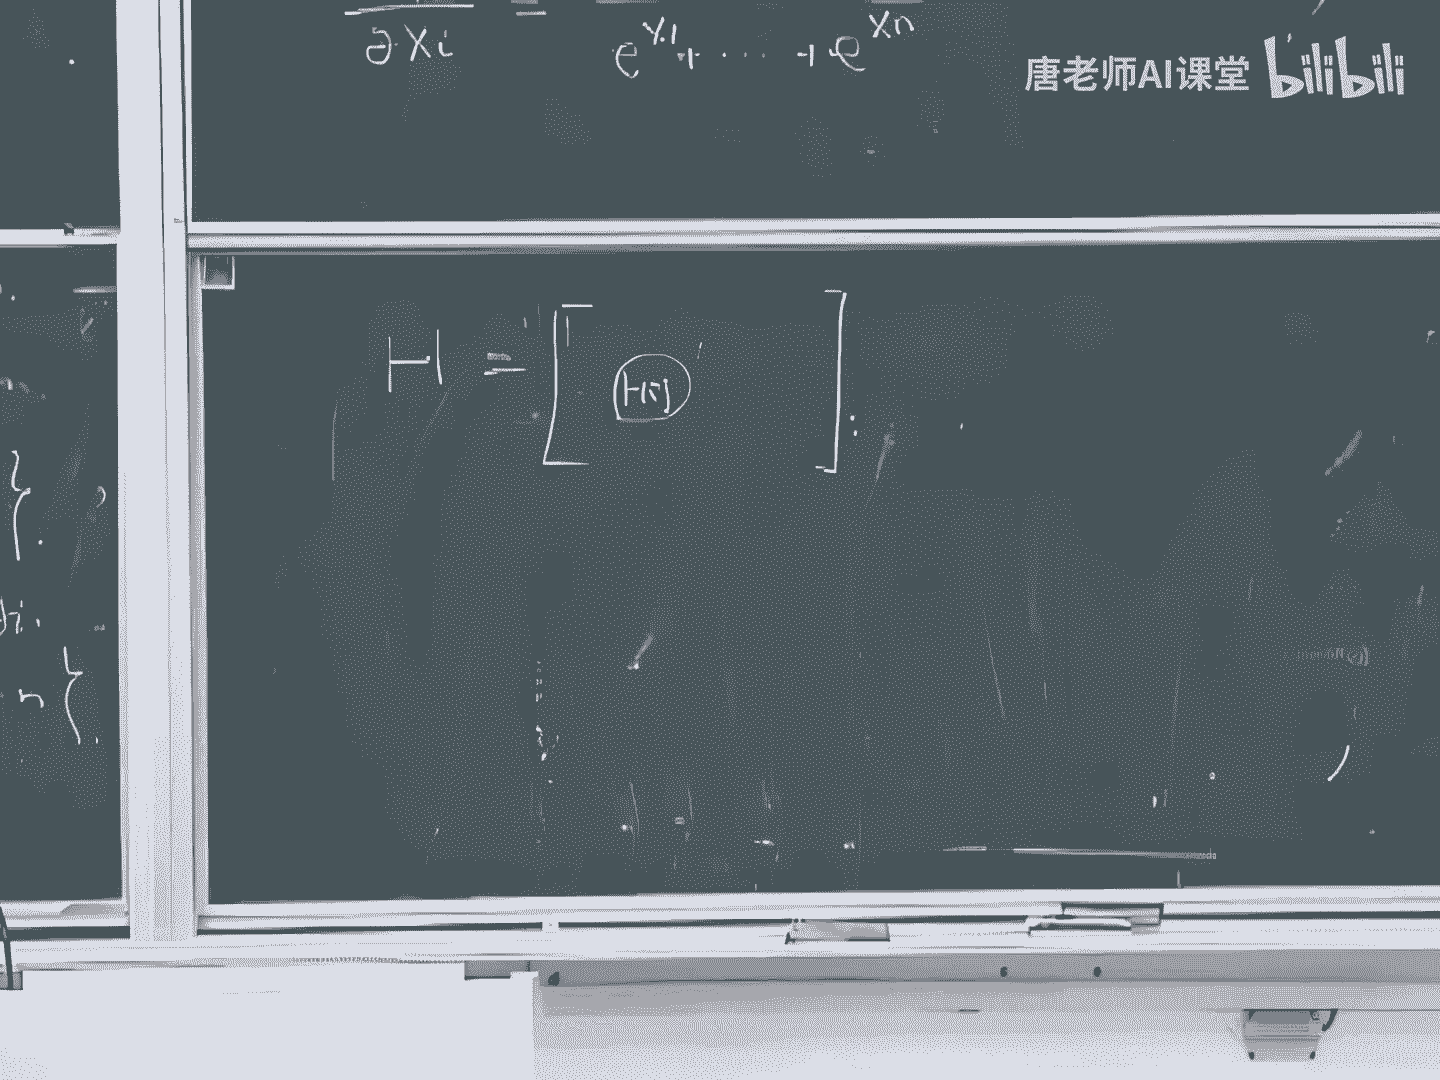 ∂Xi = e^X1 + ··· + e^Xn
唐老师AI课堂 bilibili
H = [ Hij ]
}
}.
n }